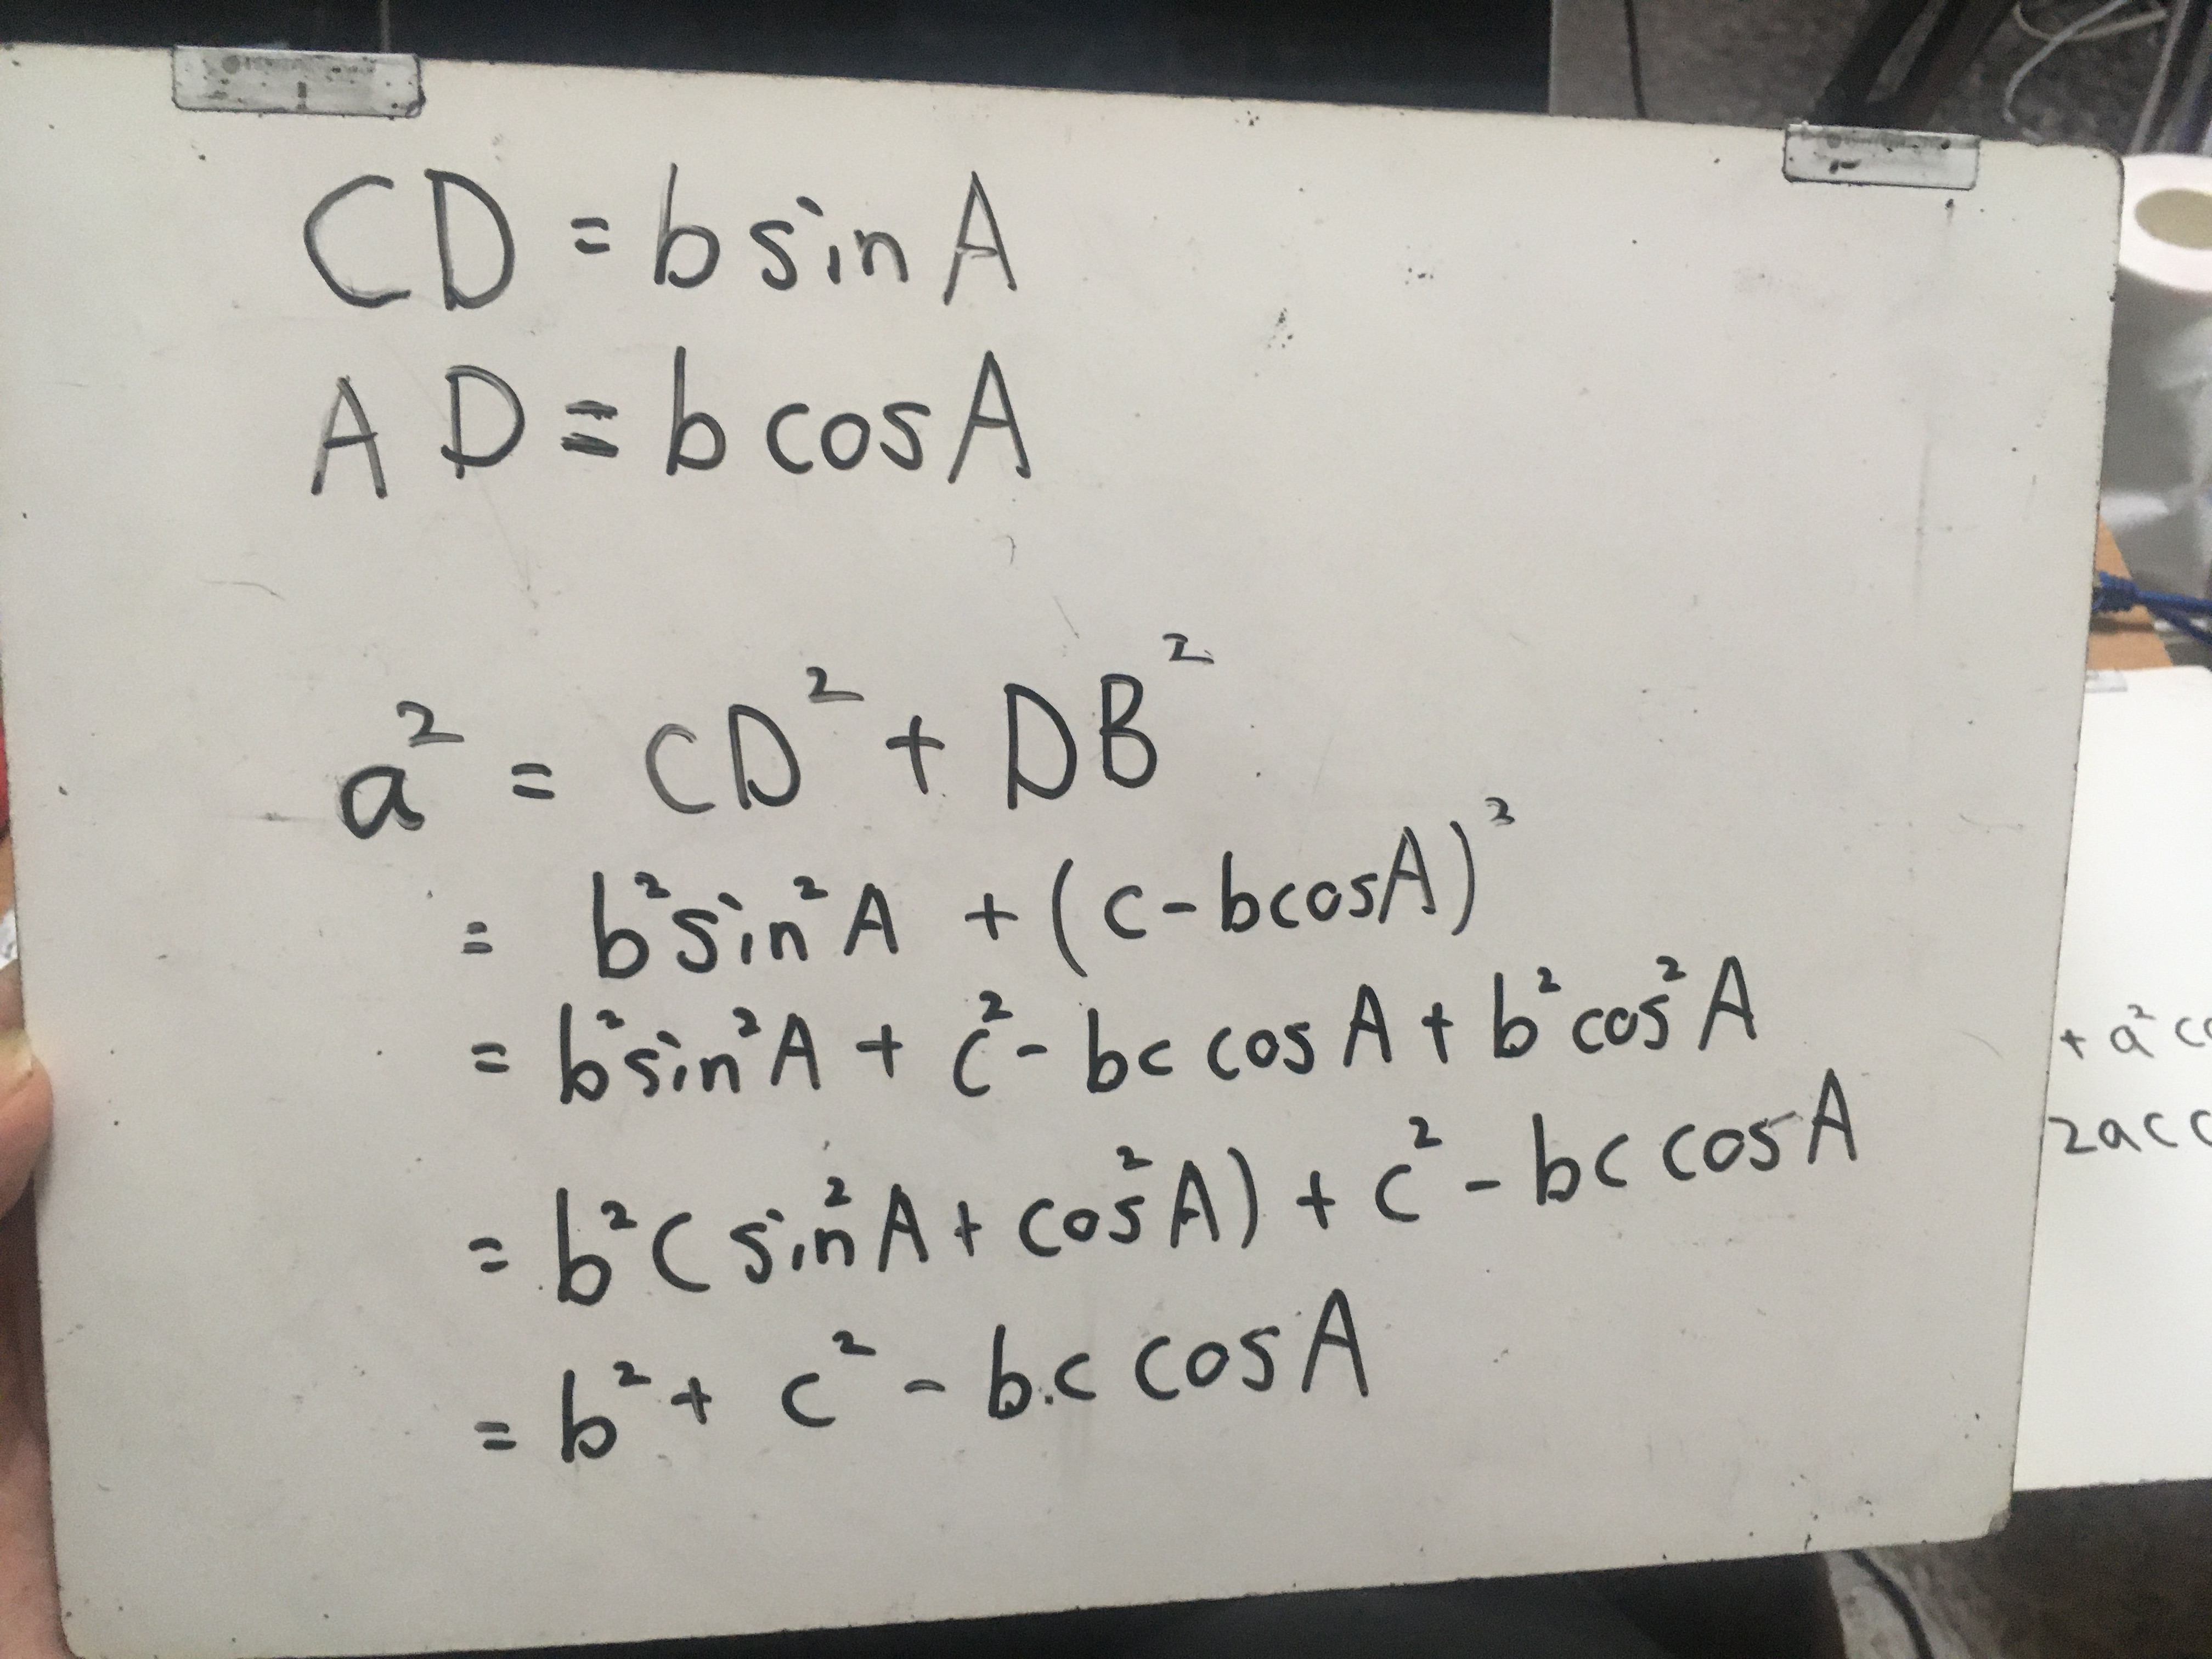 CD = b sin A
AD = b cos A
a² = CD² + DB²
= b² sin² A + (c - b cos A)²
= b² sin² A + c² - bc cos A + b² cos² A
= b² (sin² A + cos² A) + c² - bc cos A
= b² + c² - bc cos A
+ a² c
2ac c